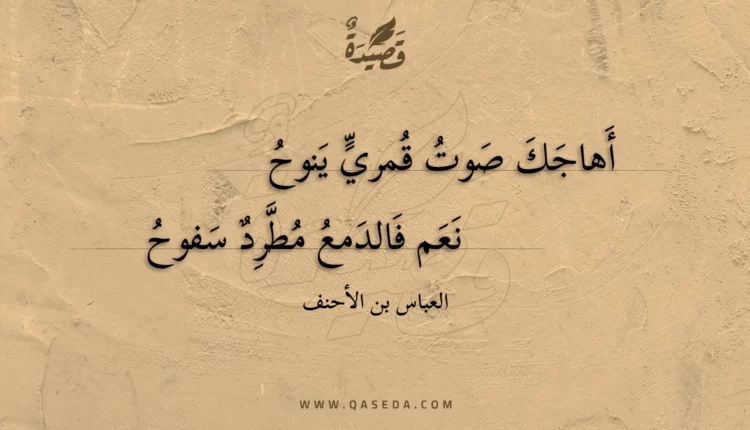 قَصِيْدَةٌ
أَهاجَكَ صَوتُ قُمريٍّ يَنوحُ
نَعَم فَالدَمعُ مُطَّرِدٌ سَفوحُ
العباس بن الأحنف
WWW.QASEDA.COM